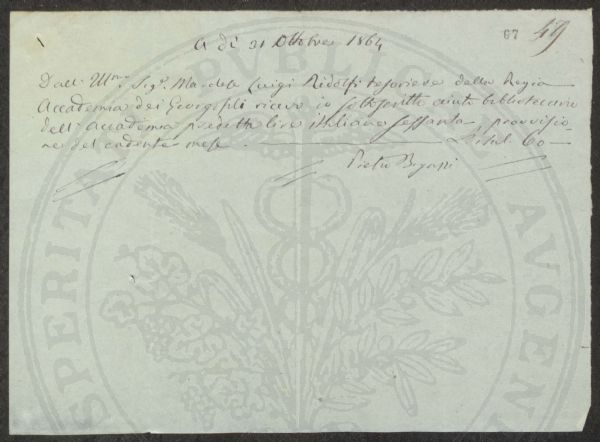 67 49
A dì 31 Ottobre 1864
Dall' Ill.mo Sig.r March.e Luigi Ridolfi tesoriere della Regia
Accademia dei Georgofili ricevo io sottoscritto aiuto bibliotecario
dell' Accademia predetta lire italiane sessanta provvisio-
ne del cadente mese. Lital 60
Pietro
PUBLICAE
SPERITATI
AUGEN